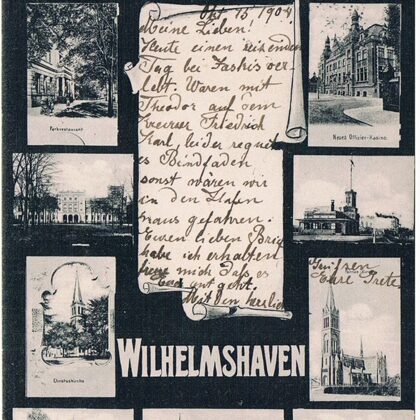 Okt 15 1904
Meine Lieben!
Heute einen reizenden
Tag bei Faskis ver
lebt. Waren mit
Theodor auf dem
Kreuzer Friedrich
Karl, leider regnet
es Bindfaden
sonst wären wir
in den Hafen
naus gefahren.
Euren lieben Brief
habe ich erhalten
freue mich das es
Euch gut geht.
Mit den herzlich
Grüssen
Eure Grete
Parkrestaurant
Neues Offizier-Kasino
Christuskirche
WILHELMSHAVEN